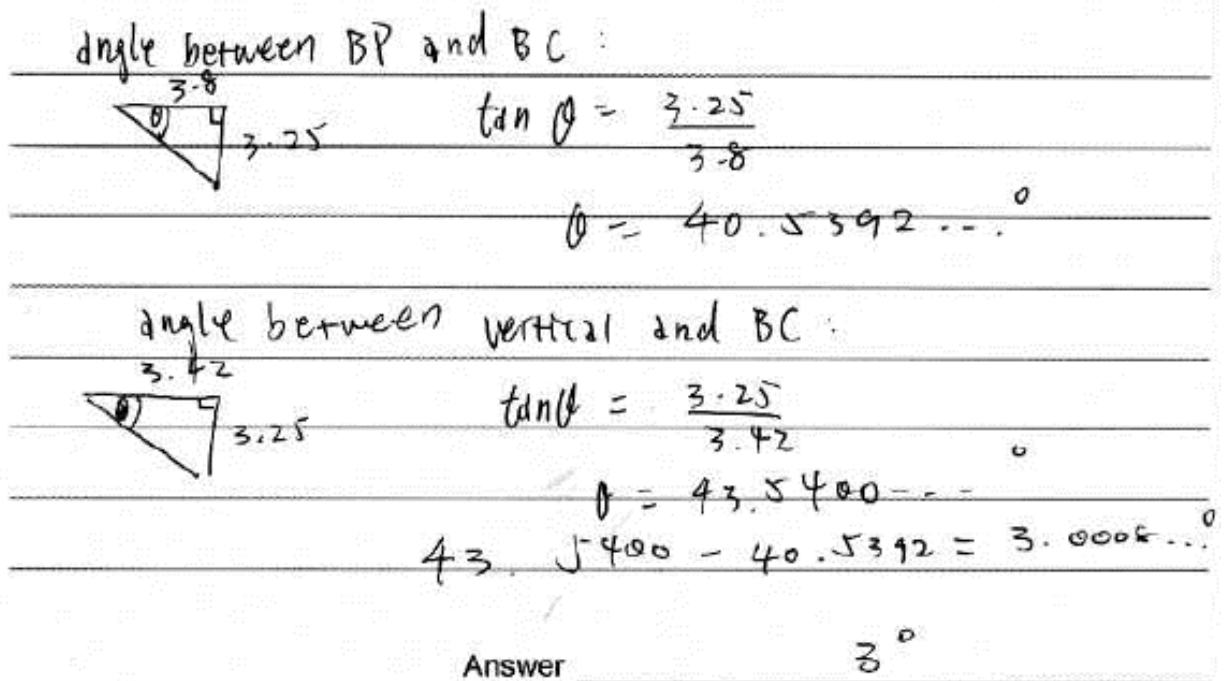 angle between BP and BC :
3.8
θ
3.25
tan θ = 3.25 / 3.8
θ = 40.5392...°
angle between vertical and BC :
3.42
θ
3.25
tanθ = 3.25 / 3.42
θ = 43.5400...°
43.5400 - 40.5392 = 3.0008...°
Answer 3°